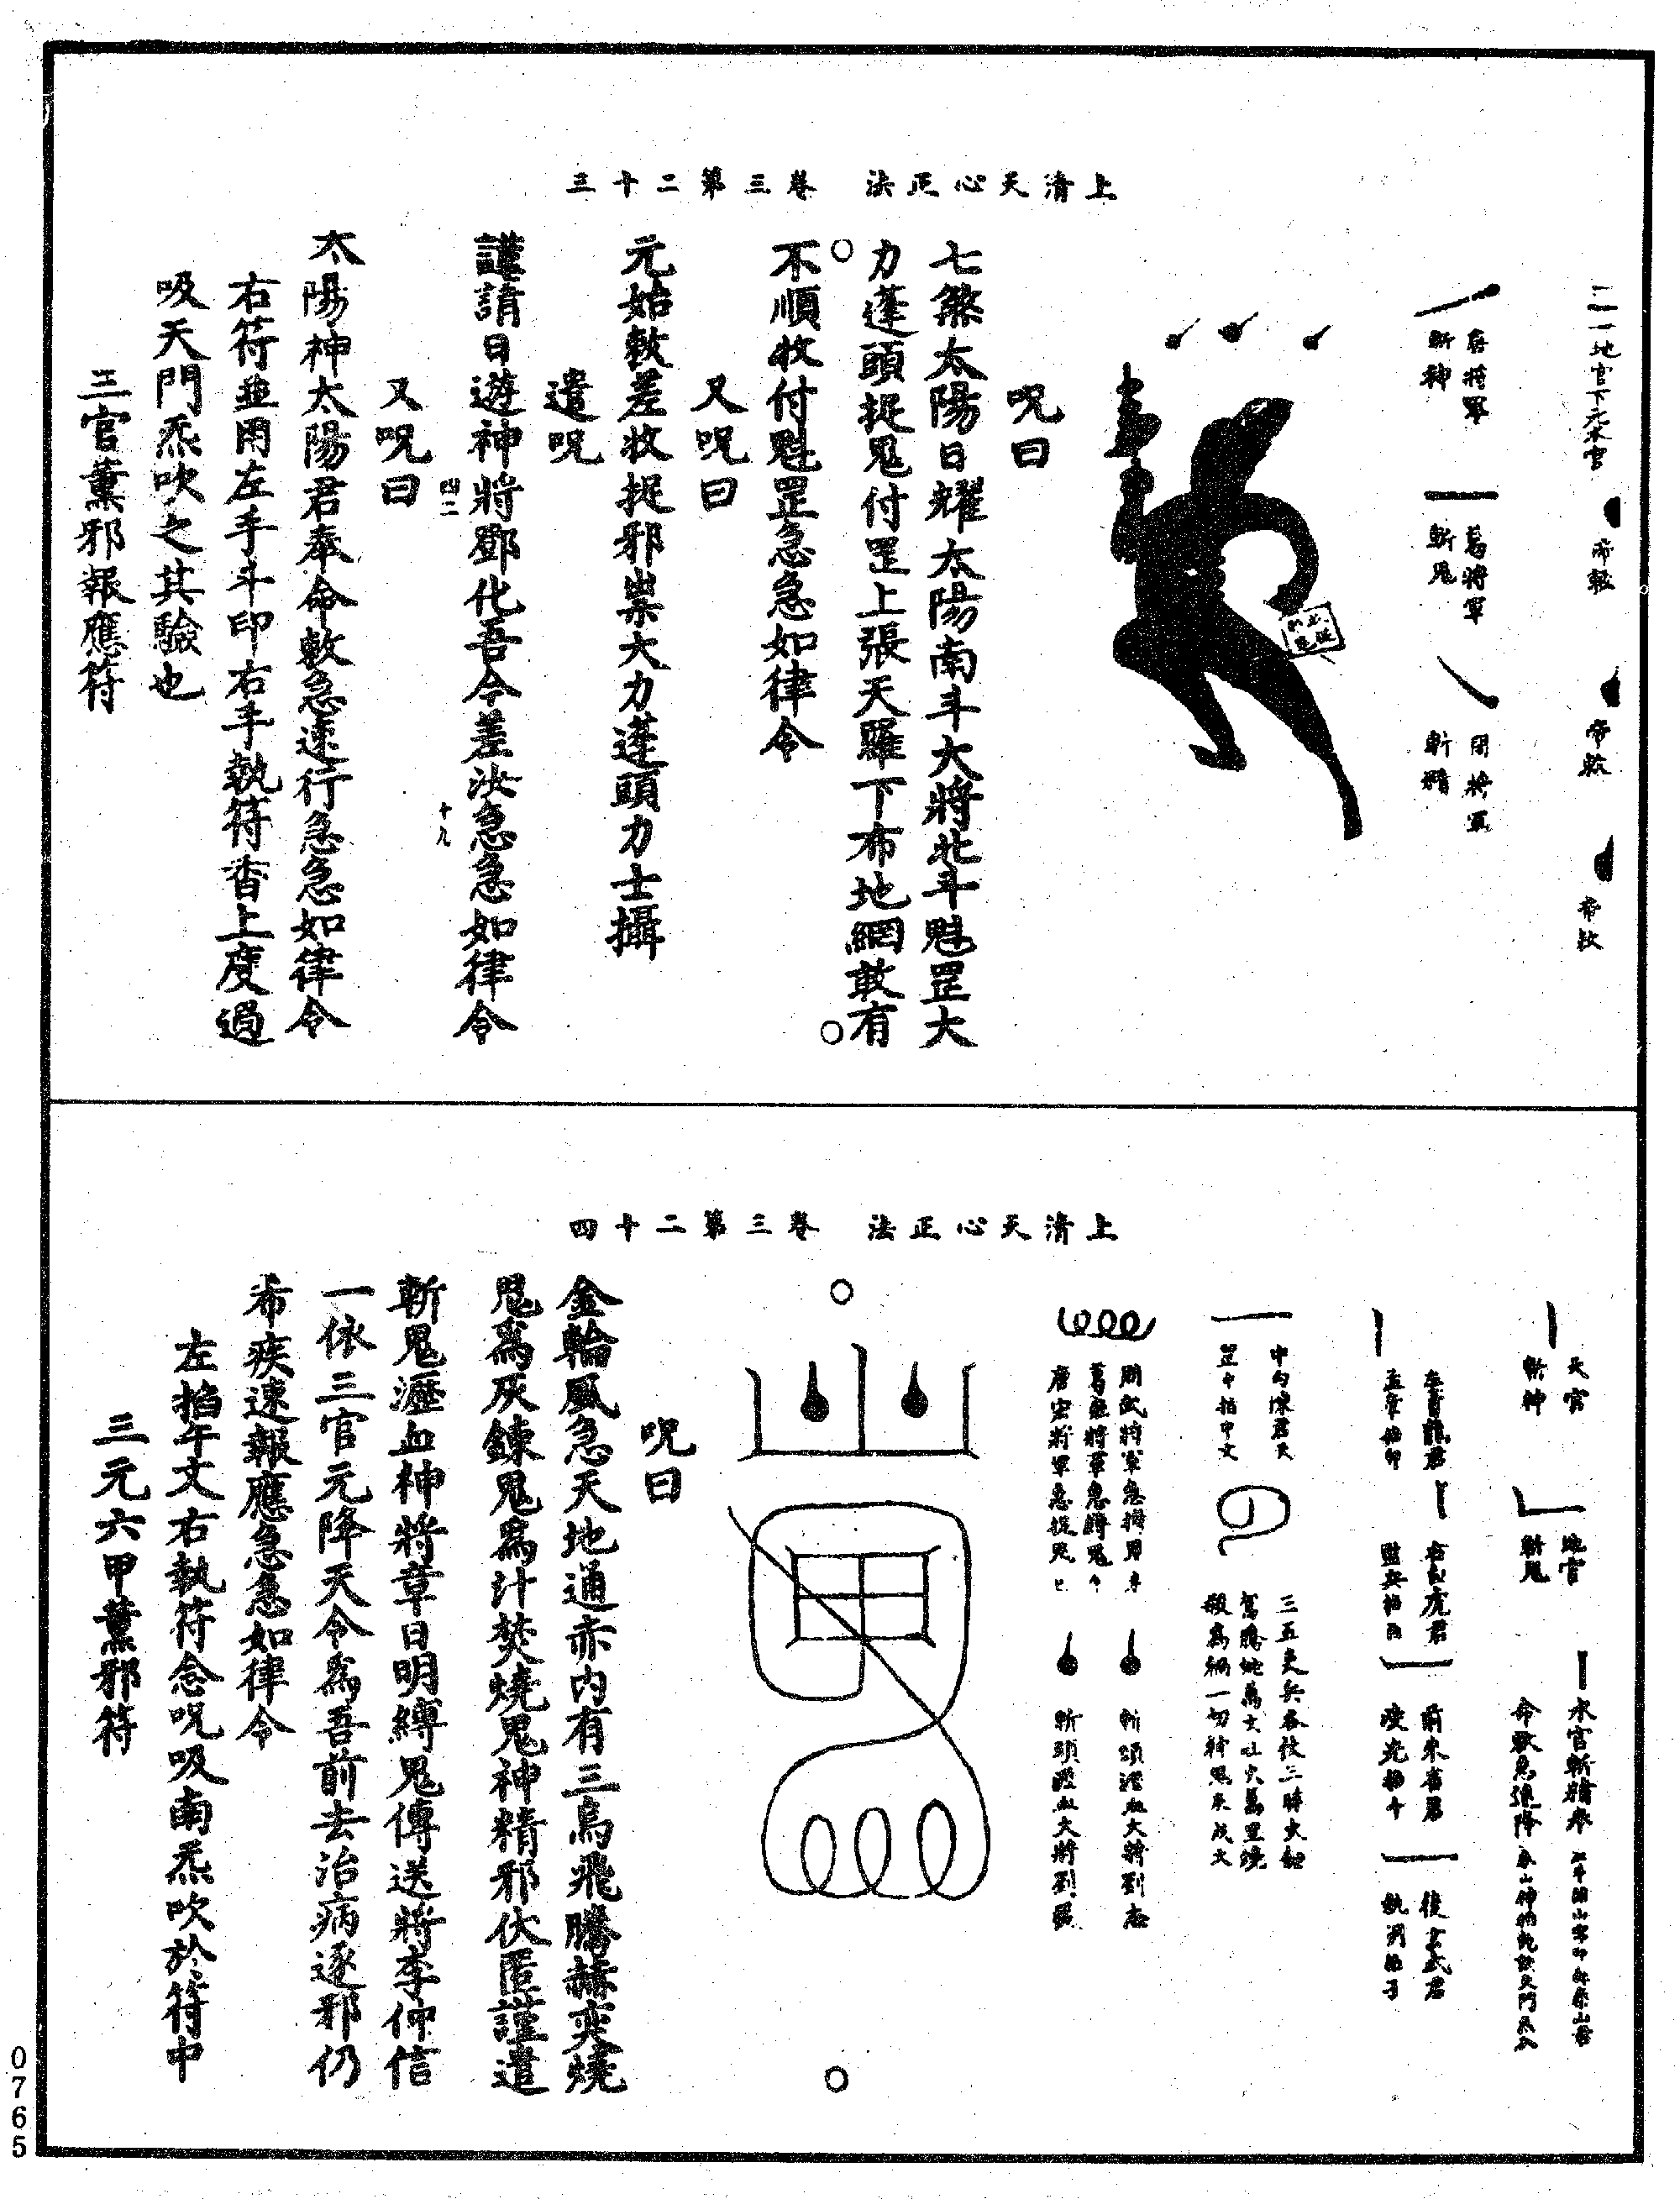 上清天心正法　卷三第二十三
二一地官下元水官
帝敕
帝敕
帝敕
唐將軍
斬神
葛將軍
斬鬼
周將軍
斬精
呪曰
七煞太陽日耀太陽南斗大將北斗魁罡大
力蓬頭捉鬼付罡上張天羅下布地網敢有
不順收付魁罡急急如律令
又呪曰
元始敕差收捉邪祟大力蓬頭力士攝
遣呪
謹請日遊神將鄧化吾今差汝急急如律令
四二
十九
又呪曰
太陽神太陽君奉命敕急速行急急如律令
右符並用左手斗印右手執符香上度過
吸天門炁吹之其驗也
三官薰邪報應符
上清天心正法　卷三第二十四
天官
斬神
地官
斬鬼
水官斬精奉
命敕急進降
左青龍君
孟章掐卯
右白虎君
監兵掐酉
前朱雀君
陵光掐午
後玄武君
執明掐子
中勾陳君天
罡中掐中文
三五吏兵各仗三昧火輪
駕騰蛇萬丈吐火萬里燒
周武將軍急搜用
葛雍將軍急縛鬼
唐宏將軍急捉鬼
斬頭瀝血大將劉志
斬頭瀝血大將劉
呪曰
金輪風急天地通赤内有三烏飛騰赫奕燒
鬼爲灰鍊鬼爲汁焚燒鬼神精邪伏匿謹遣
斬鬼瀝血神將章日明縛鬼傳送將李仲信
一依三官元降天令爲吾前去治病逐邪仍
希疾速報應急急如律令
左掐午文右執符念呪吸南炁吹於符中
三元六甲薰邪符
0765